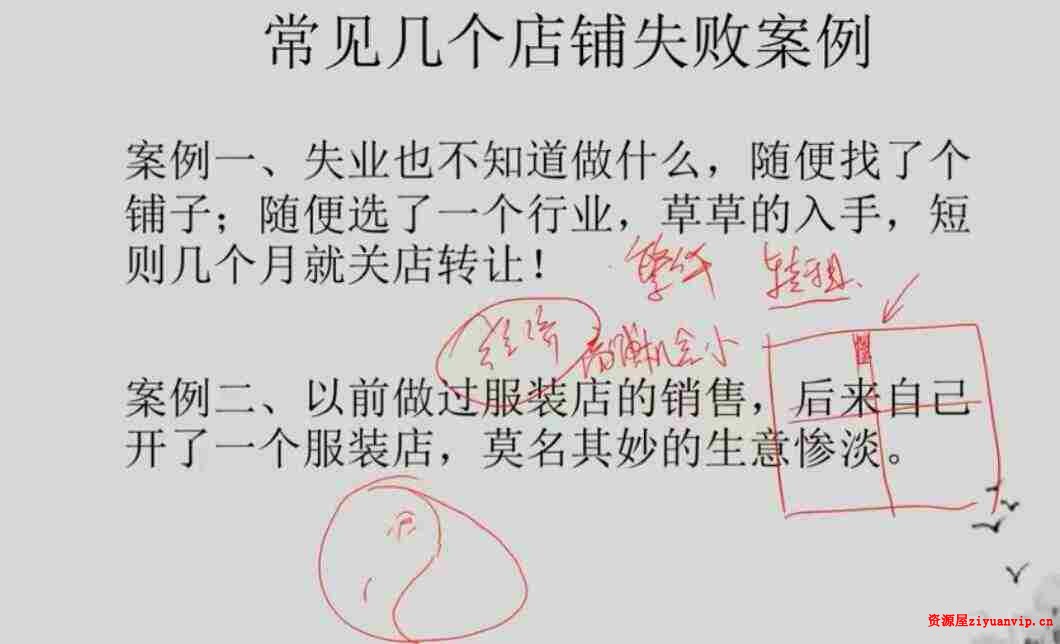 常见几个店铺失败案例
案例一、失业也不知道做什么，随便找了个
铺子；随便选了一个行业，草草的入手，短
则几个月就关店转让！
案例二、以前做过服装店的销售，后来自己
开了一个服装店，莫名其妙的生意惨淡。
资源屋ziyuanvip.cn